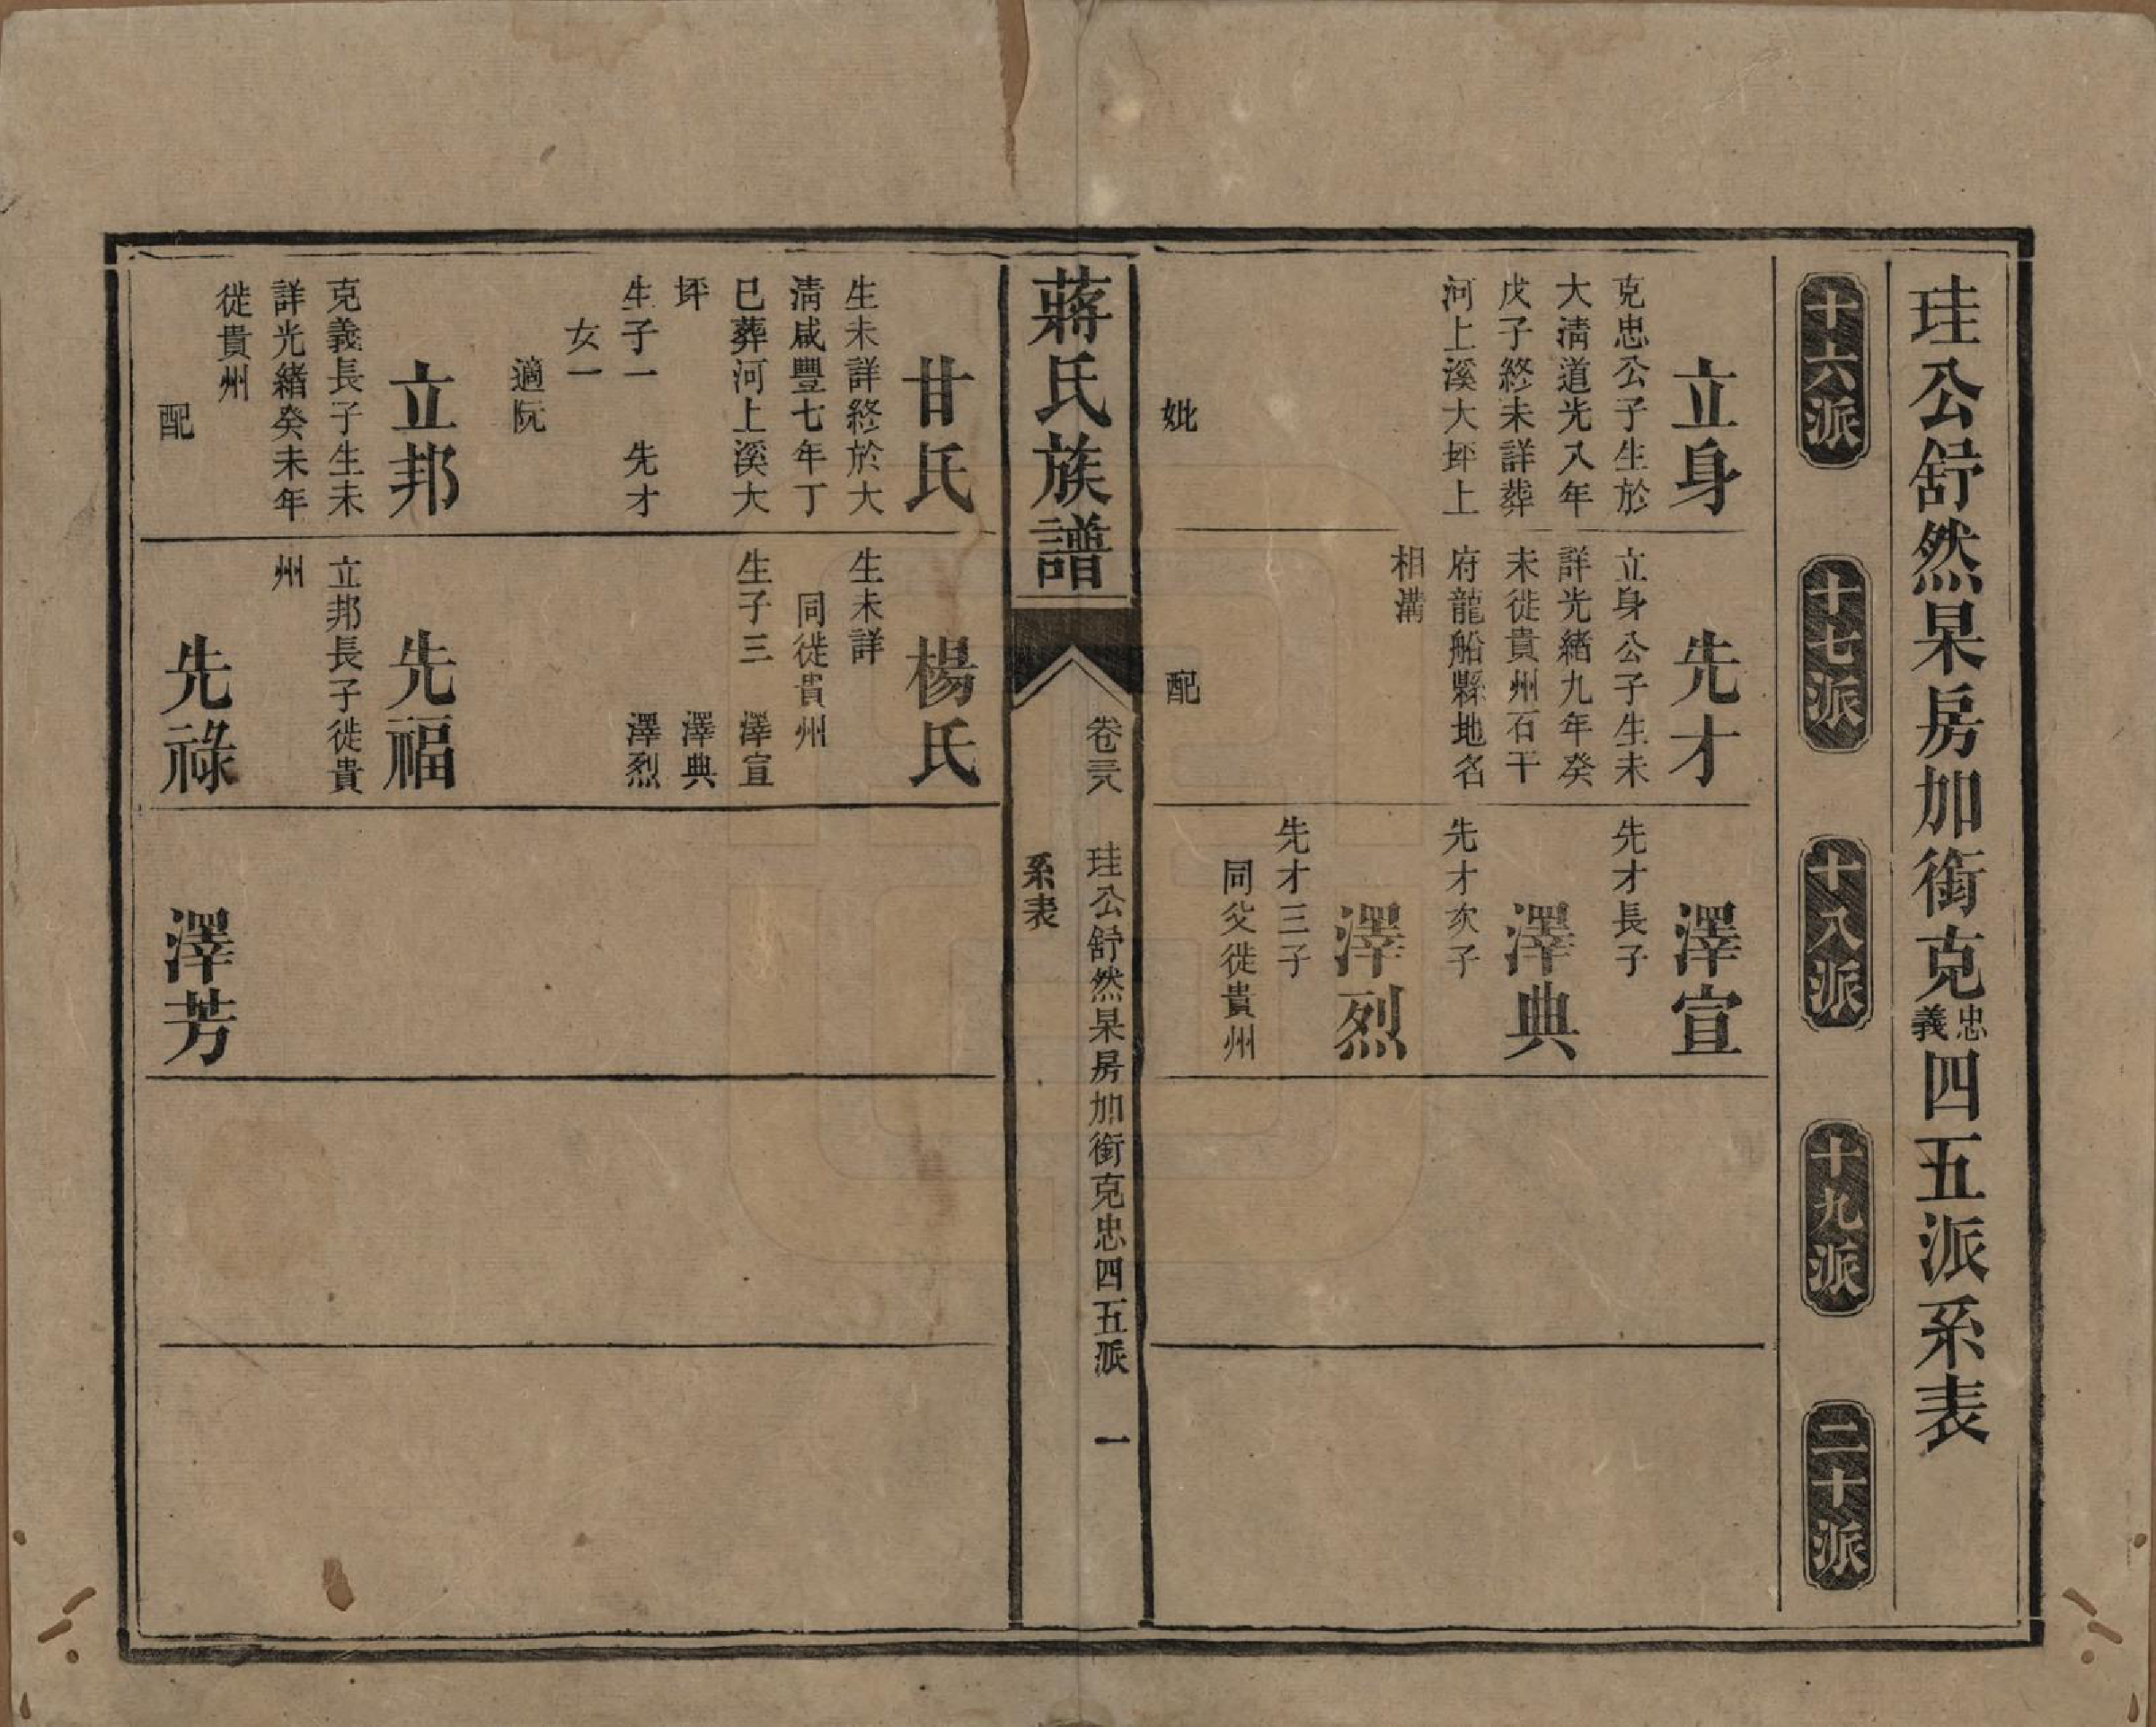 珪公舒然杲房加銜克忠義四五派系表
十六派
十七派
十八派
十九派
二十派
立身
克忠公子生於
大清道光八年
戊子終未詳葬
河上溪大坪上
妣
先才
立身公子生未
詳光緒九年癸
未徙貴州石干
府龍船縣地名
相溝
配
澤宣
先才長子
澤典
先才次子
澤烈
先才三子
同父徙貴州
蔣氏族譜
卷三八
珪公舒然杲房加銜克忠四五派
一
系表
甘氏
生未詳終於大
清咸豐七年丁
巳葬河上溪大
坪
生子一 先才
女一
適阮
立邦
克義長子生未
詳光緒癸未年
徙貴州
配
楊氏
生未詳
同徙貴州
生子三 澤宣
澤典
澤烈
先福
立邦長子徙貴
州
先祿
澤芳